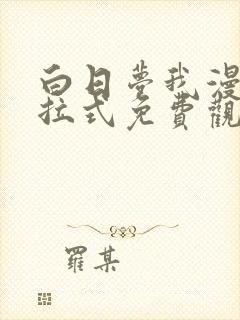 白日夢我漫
拉式免費觀
羅某